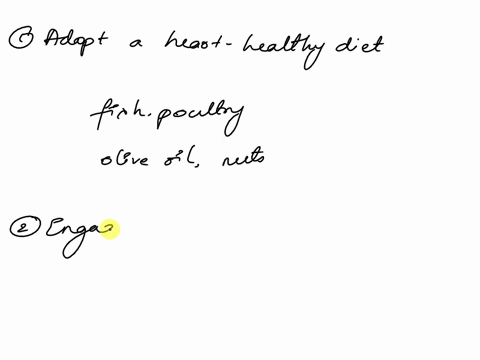 ① Adopt a heart-healthy diet
fish. poultry
olive oil, nuts
② Engag